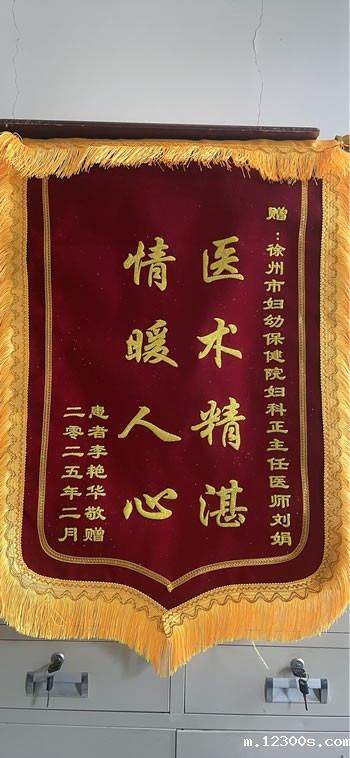 赠：徐州市妇幼保健院妇科正主任医师刘娟
医术精湛
情暖人心
患者李艳华敬赠
二零二五年二月
m.12300s.com